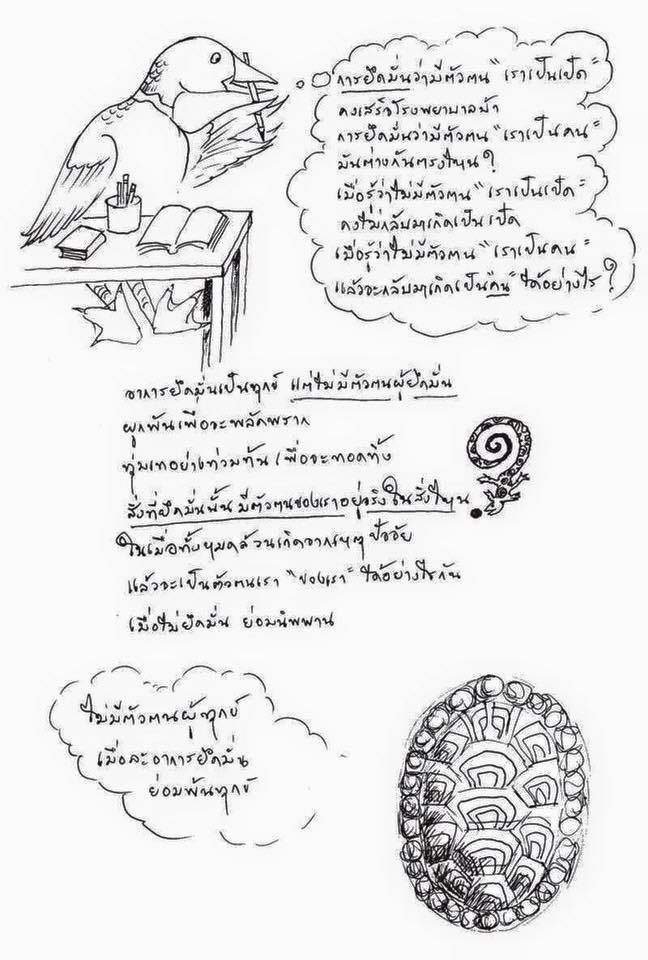 การยึดมั่นว่ามีตัวตน "เราเป็นเป็ด"
คงเสร็จโรงพยาบาลบ้า
การยึดมั่นว่ามีตัวตน "เราเป็นคน"
มันต่างกันตรงไหน ?
เมื่อรู้ว่าไม่มีตัวตน "เราเป็นเป็ด"
คงไม่กลับมาเกิดเป็นเป็ด
เมื่อรู้ว่าไม่มีตัวตน "เราเป็นคน"
แล้วจะกลับมาเกิดเป็น "คน" ได้อย่างไร ?
อาการยึดมั่นเป็นทุกข์ แต่ไม่มีตัวตนผู้ยึดมั่น
ผูกพันเพื่อจะพลัดพราก
ทุ่มเทอย่างท่วมท้น เพื่อจะทอดทิ้ง
สิ่งที่ยึดมั่นนั้น มีตัวตนของเราอยู่จริง ในสิ่งไหน
ในเมื่อทั้งหมดล้วนเกิดจากเหตุ ปัจจัย
แล้วจะเป็นตัวตนเรา "ของเรา" ได้อย่างไรกัน
เมื่อไม่ยึดมั่น ย่อมนิพพาน
ไม่มีตัวตนผู้ทุกข์
เมื่อละอาการยึดมั่น
ย่อมพ้นทุกข์